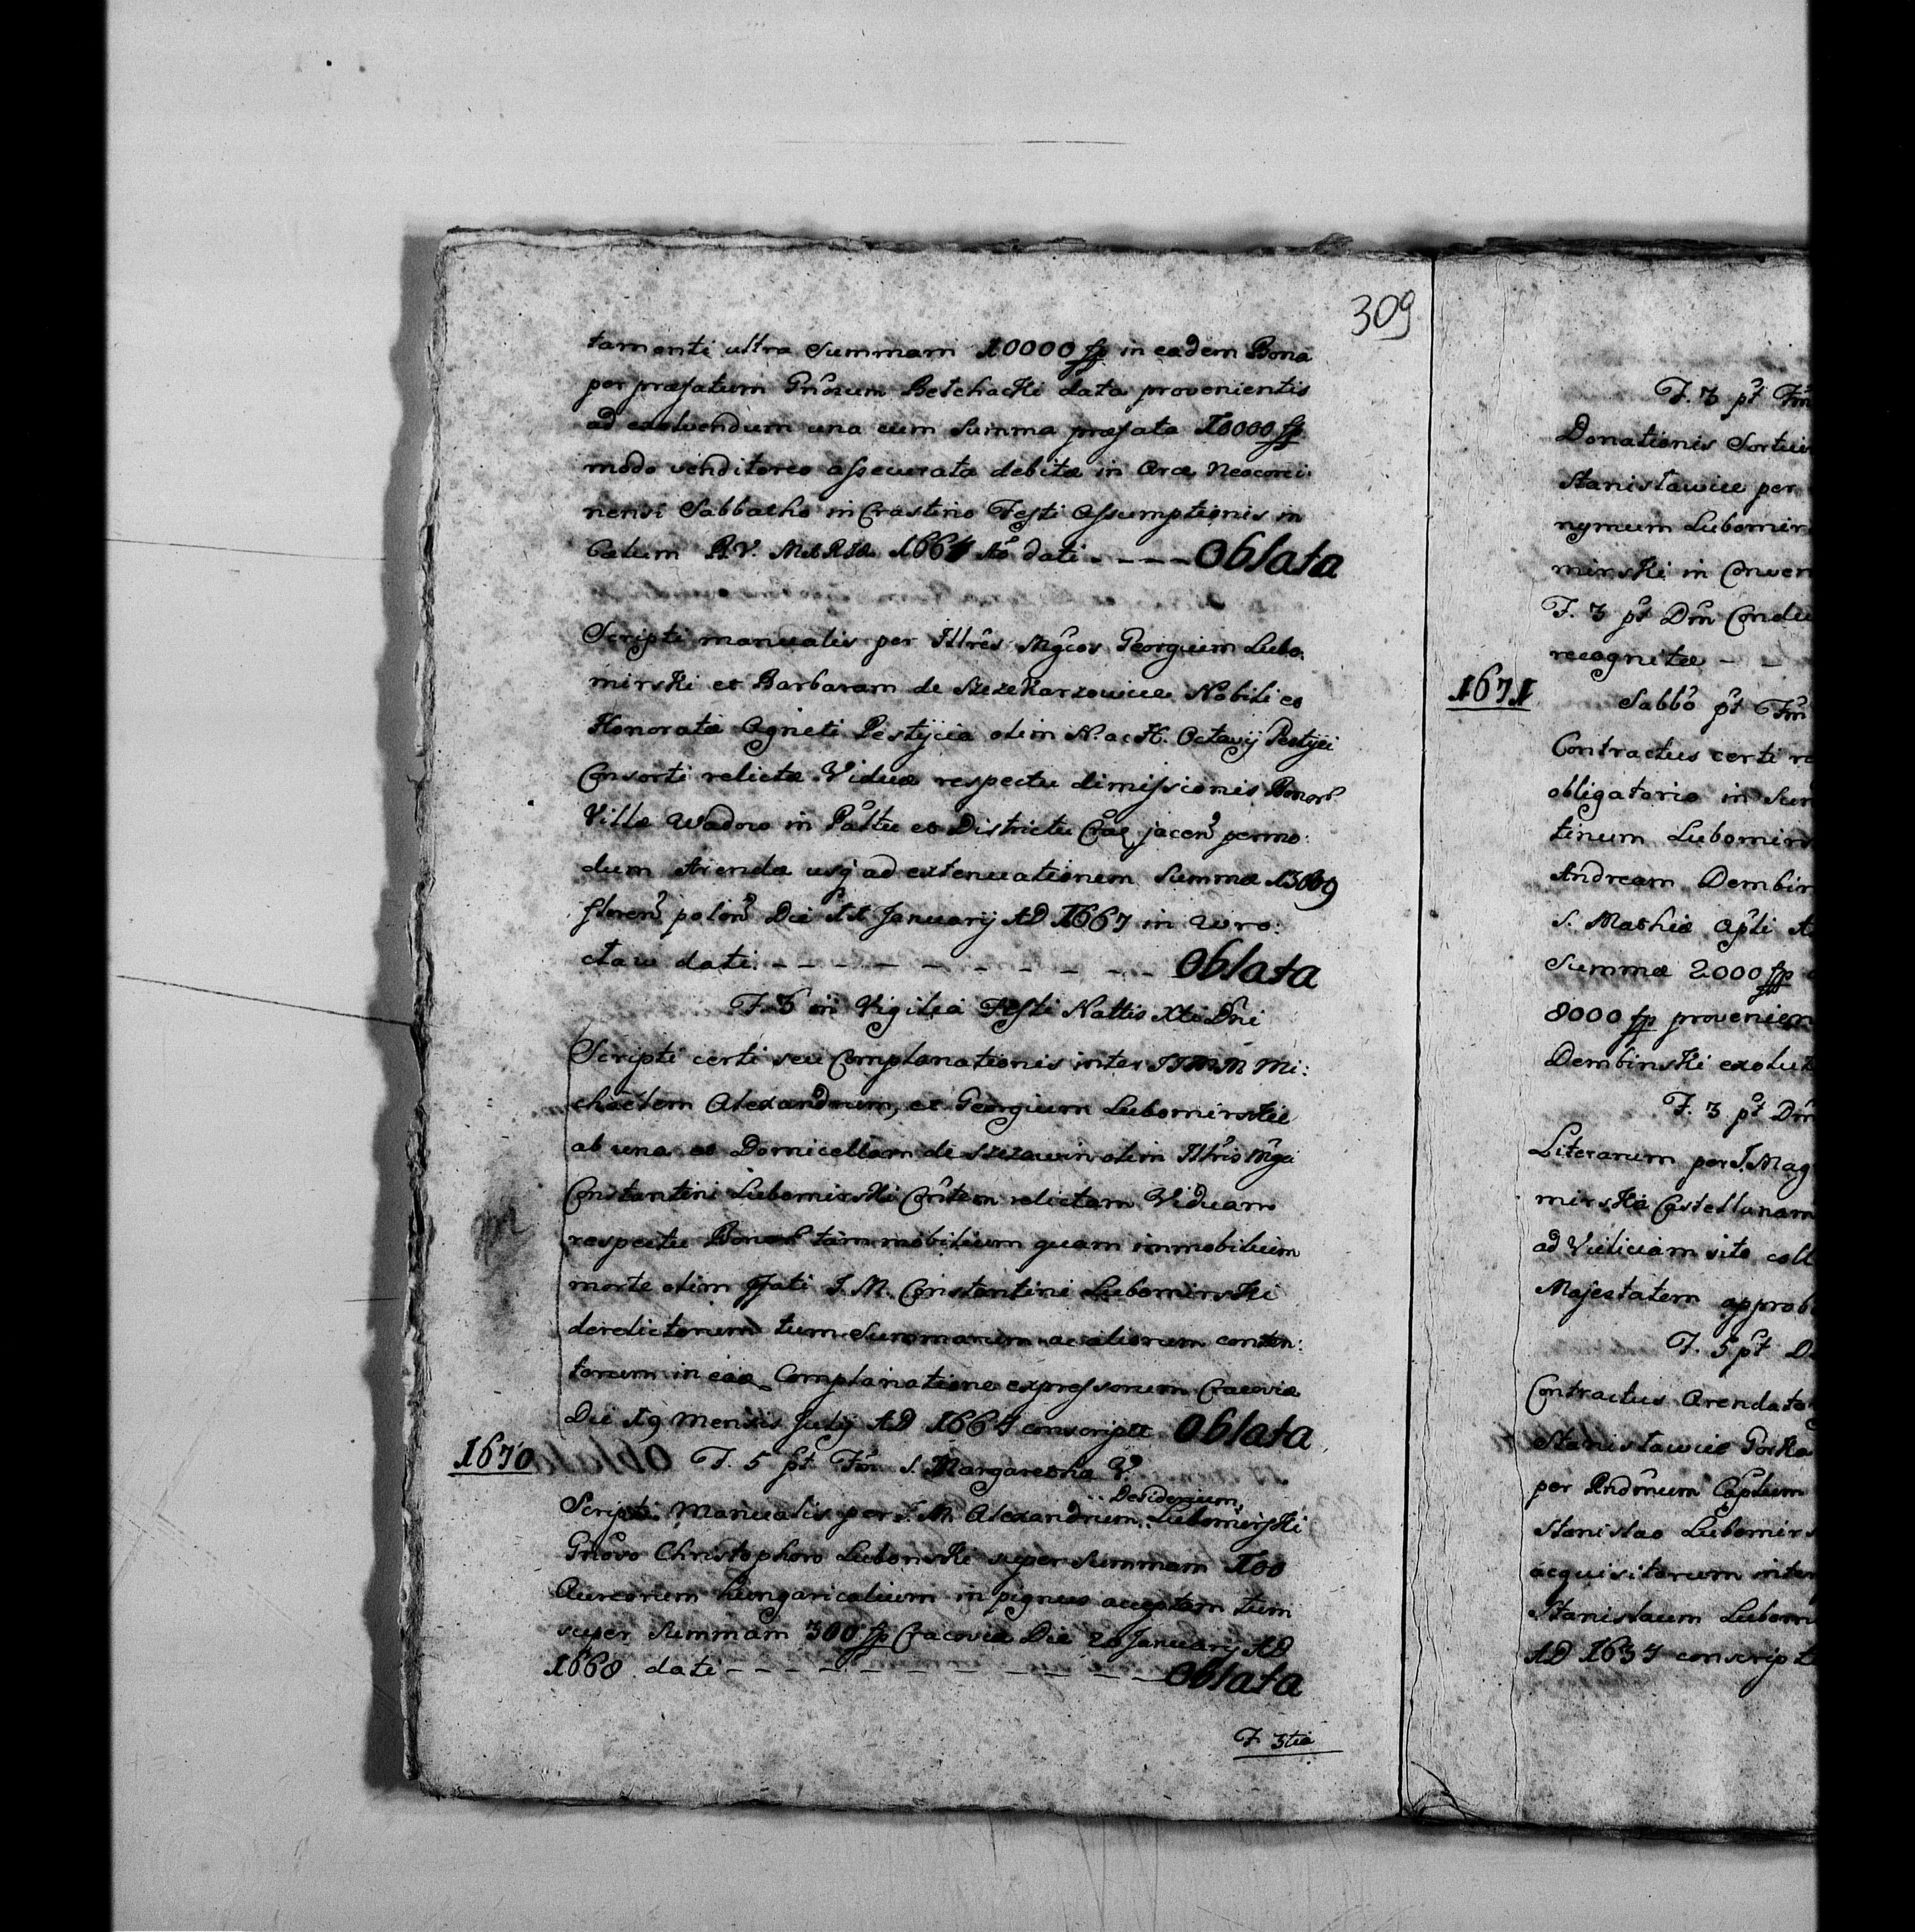 309
tamenti ultra Summam 10000 fp in eadem Bona
per præfatum Gnosum Betchacki data provenientis
ad exolvendum una cum Summa præfata 10000 fp
modo venditoreo assecurata debitæ in Arce
nensi Sabbatho in Crastino Festi Assumptionis in
Cælum B.V. MARIÆ 1664 Ao dati - - - - Oblata
Scripti manualis per Illres Mgcos Georgium Lubo:
mirski et Barbaram de Szczekarzowice Nobili et
Honoratæ Agneti Pestycia olim N. ac H. Octavij Pestyci
Consorti relictæ Viduæ respectu dimissionis Bonor
Villæ Wadow in Pattu et Districtu jacen permo:
dum Arendæ usq ad extenuationem Summæ
floren polon Die 11 Januarij AD 1667 in Wro:
claw dati - - - - - - - - - - Oblata
F. 3 in Vigilia Festi Nattis Xti Dni
Scripti certi seu Complanationis inter IIMM Mi:
chaelem Alexandrum, et Georgium Lubomirskie
ab una et Domicellam de Szczawin olim Illris Mgci
Constantini Lubomirski Contem relictam Viduam
respectu Bonor tam mobilium quam immobilium
morte olim pfati I. M. Constantini Lubomirski
derelictorum tum Summarum ac aliorum conten:
torum in eae Complanatione expressorum Cracoviæ
Die 19 Mensis Julij AD 1664 conscriptæ Oblata
1670 F. 5 pt Fm S. Margarethæ V.
Desiderium,
Scripti Manualis per I. M. Alexandrum Lubomirski
Gnoso Christophoro Lubonski super Summam 100
Aureorum hungaricalium in pignus acceptam tum
super Summam 300 fp Cracoviæ Die 20 Januarij AD
1668 dati - - - - - - - - - - Oblata
F. 3tia
F. 3 pt Fm
Donationis Sortis
Stanisławice per
nymum Lubomir
mirski in Conven
F. 3 pt Dm Condu
recognitæ - -
1671 Sabbo pt Fm
Contractus certi
obligatorio in
tinum Lubomirs
Andream Dembin
S. Mathiæ Apli
Summæ 2000 fp
8000 fp provenien
Dembinski exolut
F. 3 pt Dm
Literarum per I. Mag
mirska Castellanam
ad Vieliciam sito coll
Majestatem approb
F. 5 pt
Contractus Arendato
Stanisławice Gorka
per
Stanislao Lubomirs
acquisitorum inter
Stanislaum Lubom
AD 1634 conscript